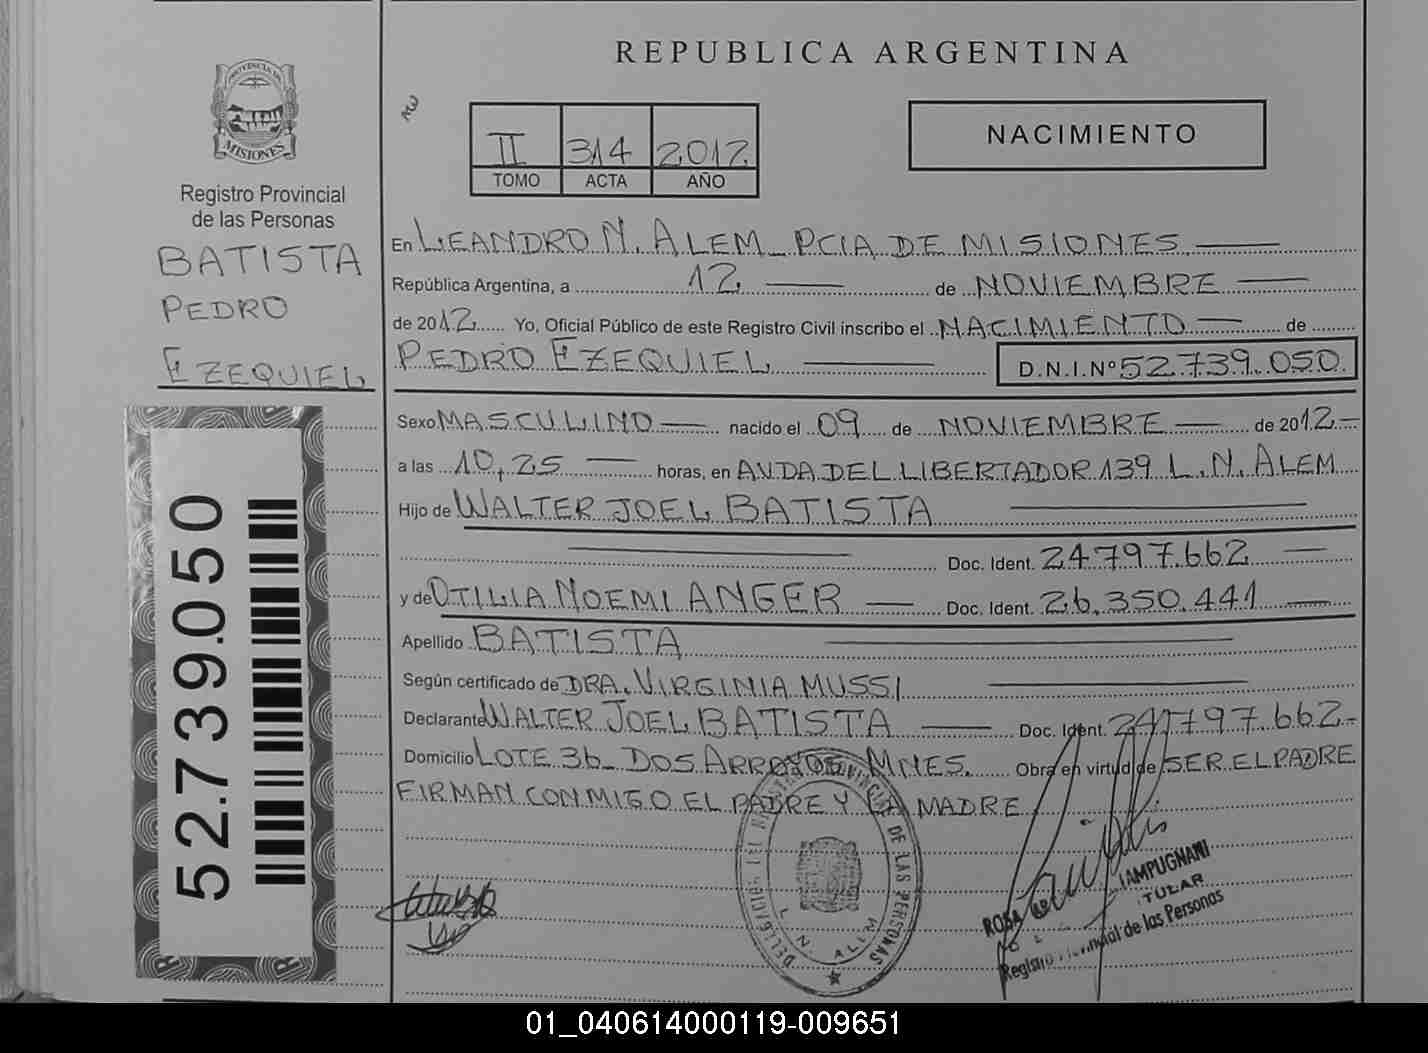 REPUBLICA ARGENTINA
PROVINCIA DE
MISIONES
Registro Provincial
de las Personas
BATISTA
PEDRO
EZEQUIEL
52.739.050
II 314 2012
TOMO ACTA AÑO
NACIMIENTO
En LEANDRO N. ALEM_ PCIA DE MISIONES
República Argentina, a 12 de NOVIEMBRE
de 2012 Yo, Oficial Público de este Registro Civil inscribo el NACIMIENTO de
PEDRO EZEQUIEL D.N.I.Nº 52.739.050
Sexo MASCULINO nacido el 09 de NOVIEMBRE de 2012
a las 10,25 horas, en AVDA DEL LIBERTADOR 139 L.N. ALEM
Hijo de WALTER JOEL BATISTA
Doc. Ident. 24.797.662
y de OTILIA NOEMI ANGER Doc. Ident. 26.350.441
Apellido BATISTA
Según certificado de DRA. VIRGINIA MUSSI
Declarante WALTER JOEL BATISTA Doc. Ident. 24.797.662
Domicilio LOTE 36_ DOS ARROYOS MNES. Obra en virtud de SER EL PADRE
FIRMAN CONMIGO EL PADRE Y LA MADRE
DE LAS PERSONAS
L. N. ALEM
ROSA
TULAR
de las Personas
01_040614000119-009651